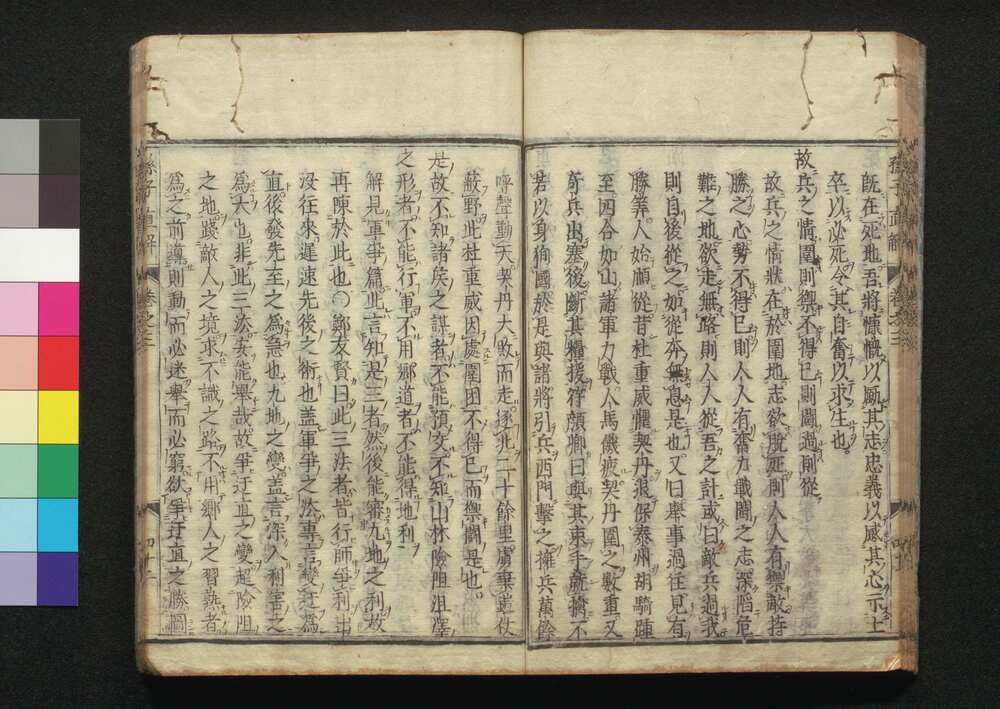 既在死地吾將慷慨以勵其志忠義以感其心示士
卒以必死令其自奮以求生也
故兵之情圍則禦不得已則鬬過則從
故兵之情狀在於圍地志欲脫死則人人有禦敵持
勝之心勢不得已則人人有奮力戰鬬之志深陷危
難之地欲走無路則人人從吾之計或曰敵兵過我
則自後從之如從奔無怠是也又曰舉事過往見有
勝筭人始願從昔杜重威懼契丹退保泰州胡騎踵
至四合如山諸軍力戰人馬饑疲契丹圍之數重又
奇兵出塞後斷其糧援符顏卿曰與其束手就擒不
若以身狥國於是與諸將引兵西門擊之擁兵萬餘
呼聲動天契丹大敗而走逐北二十餘里虜棄遺仗
蔽野此杜重威因處圍困不得已而禦鬬是也
是故不知諸侯之謀者不能預交不知山林險阻沮澤
之形者不能行軍不用鄉導者不能得地利
解見軍爭篇此言知是三者然後能審九地之利故
再陳於此也○鄭友賢曰此三法者皆行師爭利出
沒往來遲速先後之術也蓋軍爭之法專言變迂爲
直後發先至之爲急也九地之變蓋言深入利害之
爲大也非此三法安能舉哉故爭迂直之變超險阻
之地踐敵人之境求不識之路不用鄉人之習熟者
爲之前導則動而必迷舉而必窮欲爭迂直之勝圖
孫子直解
卷之三